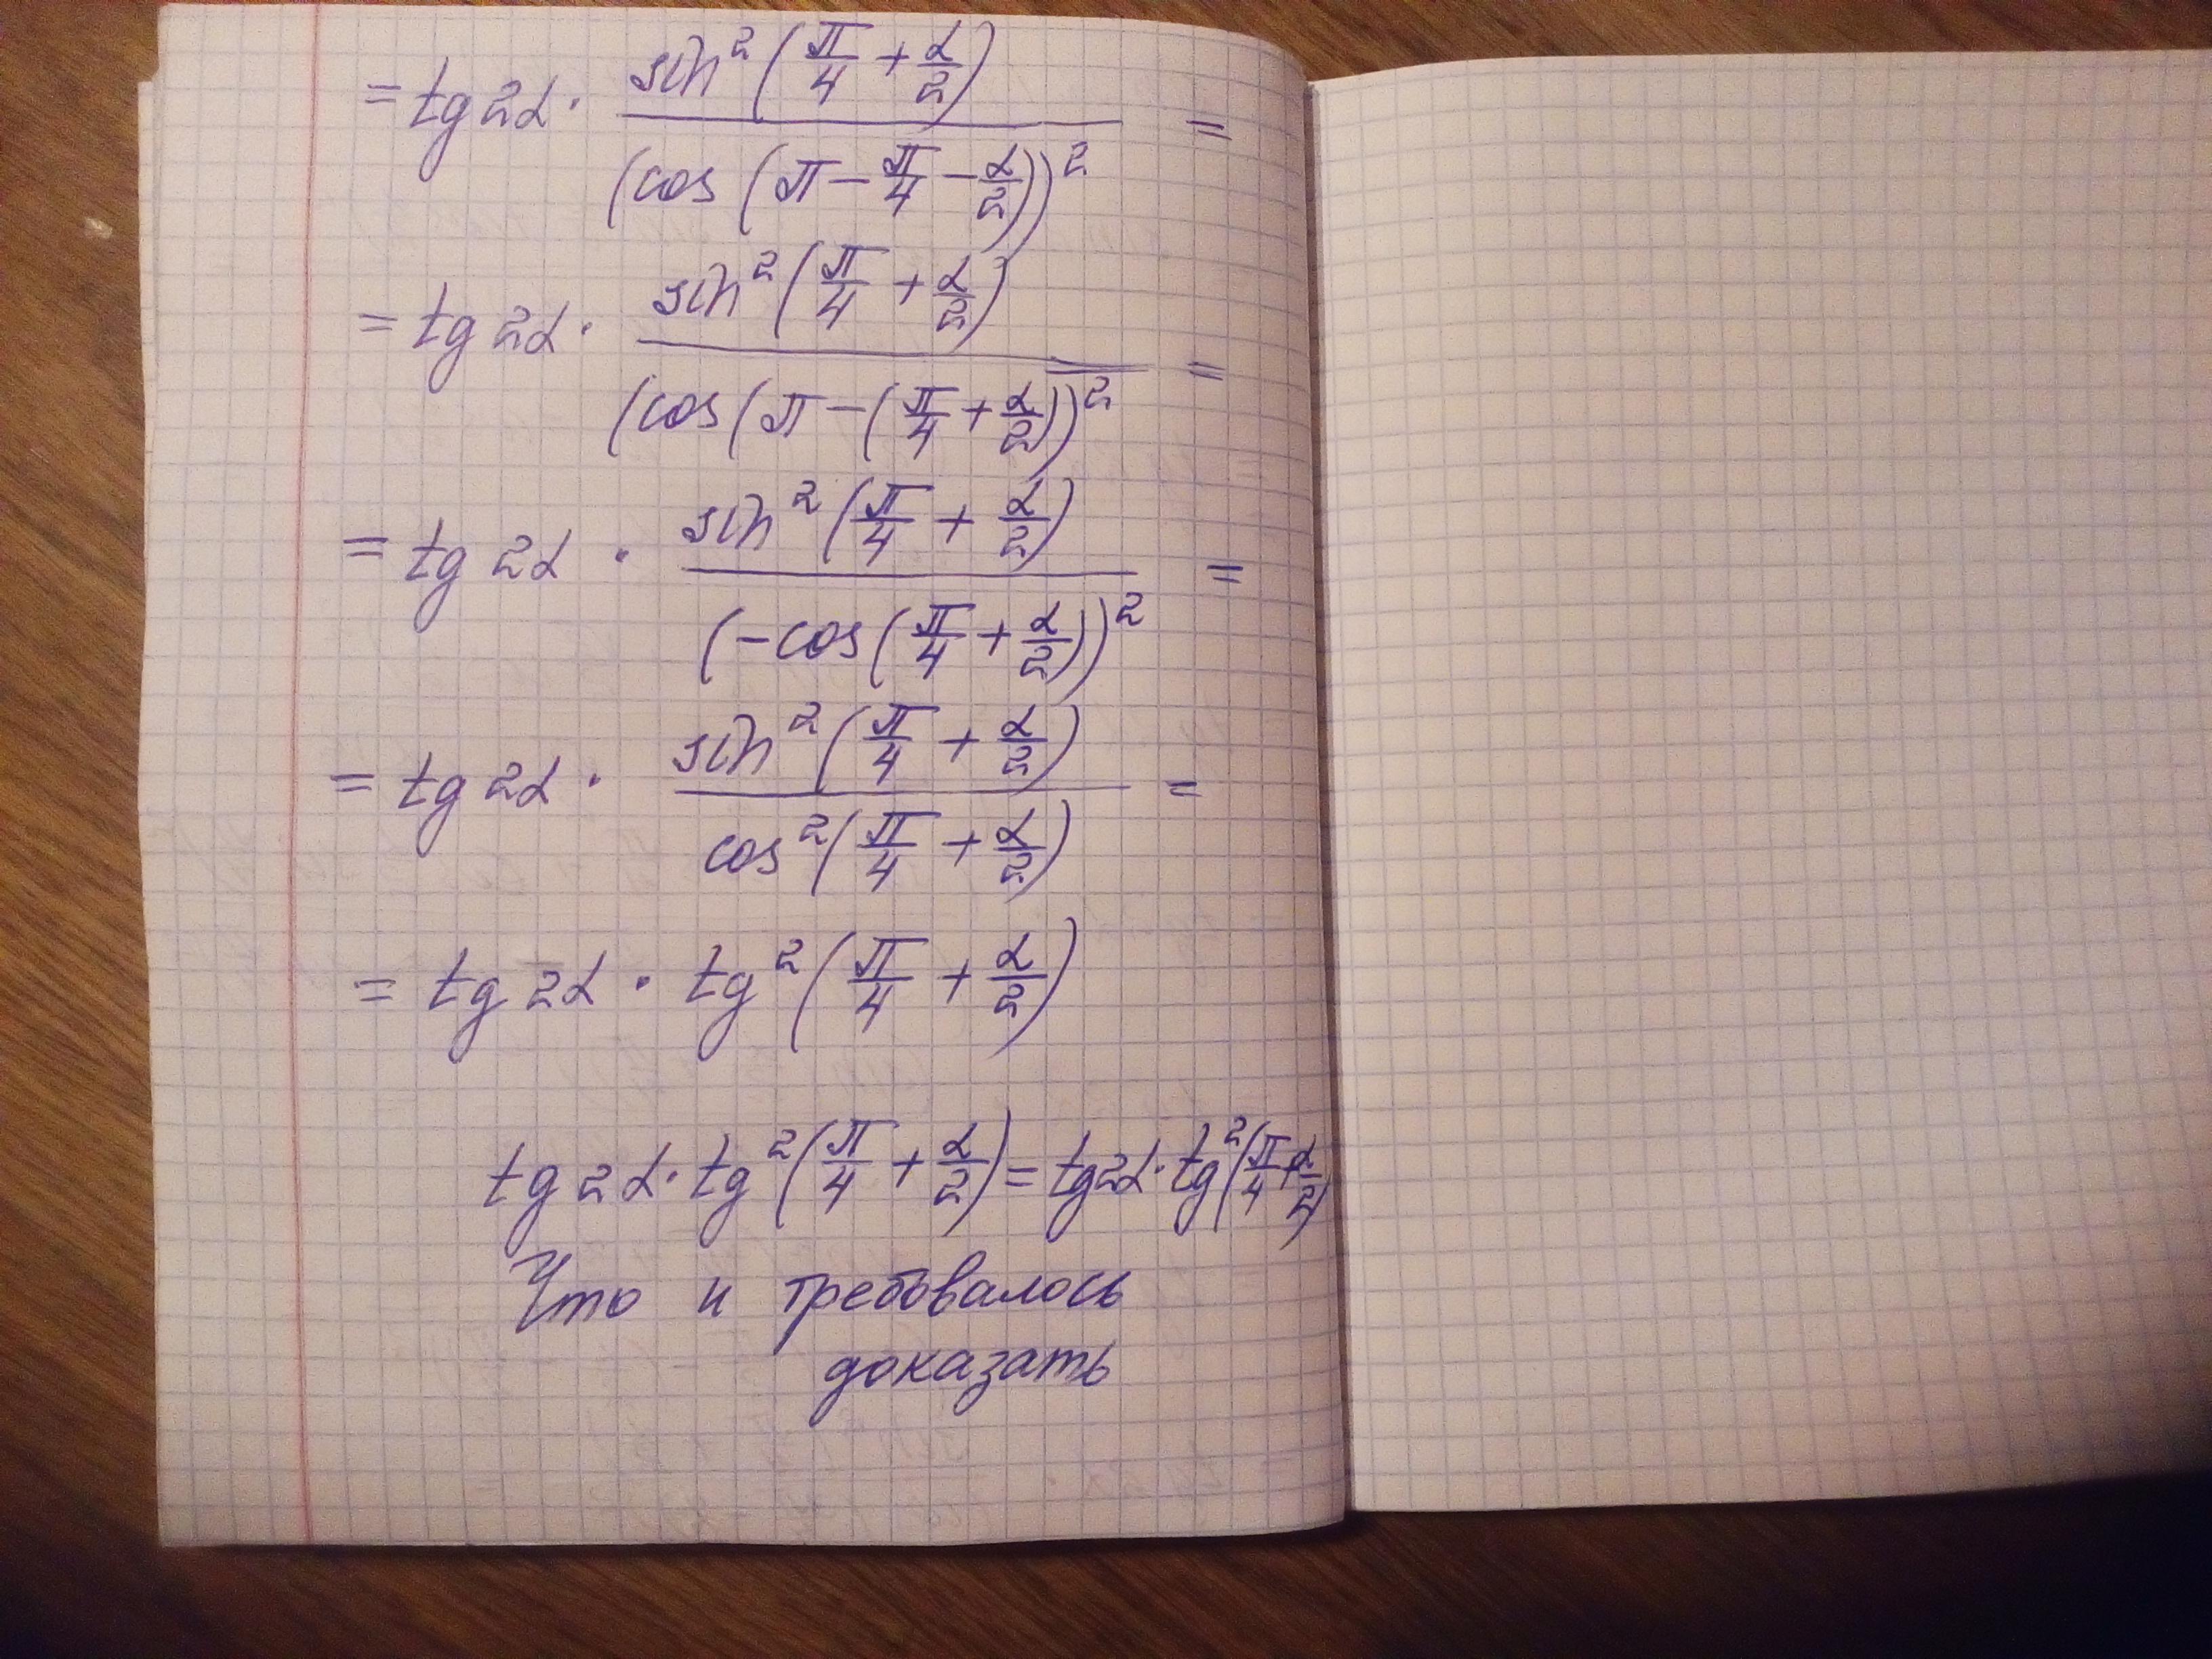 = tg 2α · sin²(π/4 + α/2) / (cos(π − π/4 − α/2))² =
= tg 2α · sin²(π/4 + α/2) / (cos(π − (π/4 + α/2))² =
= tg 2α · sin²(π/4 + α/2) / (−cos(π/4 + α/2))² =
= tg 2α · sin²(π/4 + α/2) / cos²(π/4 + α/2) =
= tg 2α · tg²(π/4 + α/2)
tg 2α · tg²(π/4 + α/2) = tg 2α · tg²(π/4 + α/2)
Что и требовалось
доказать